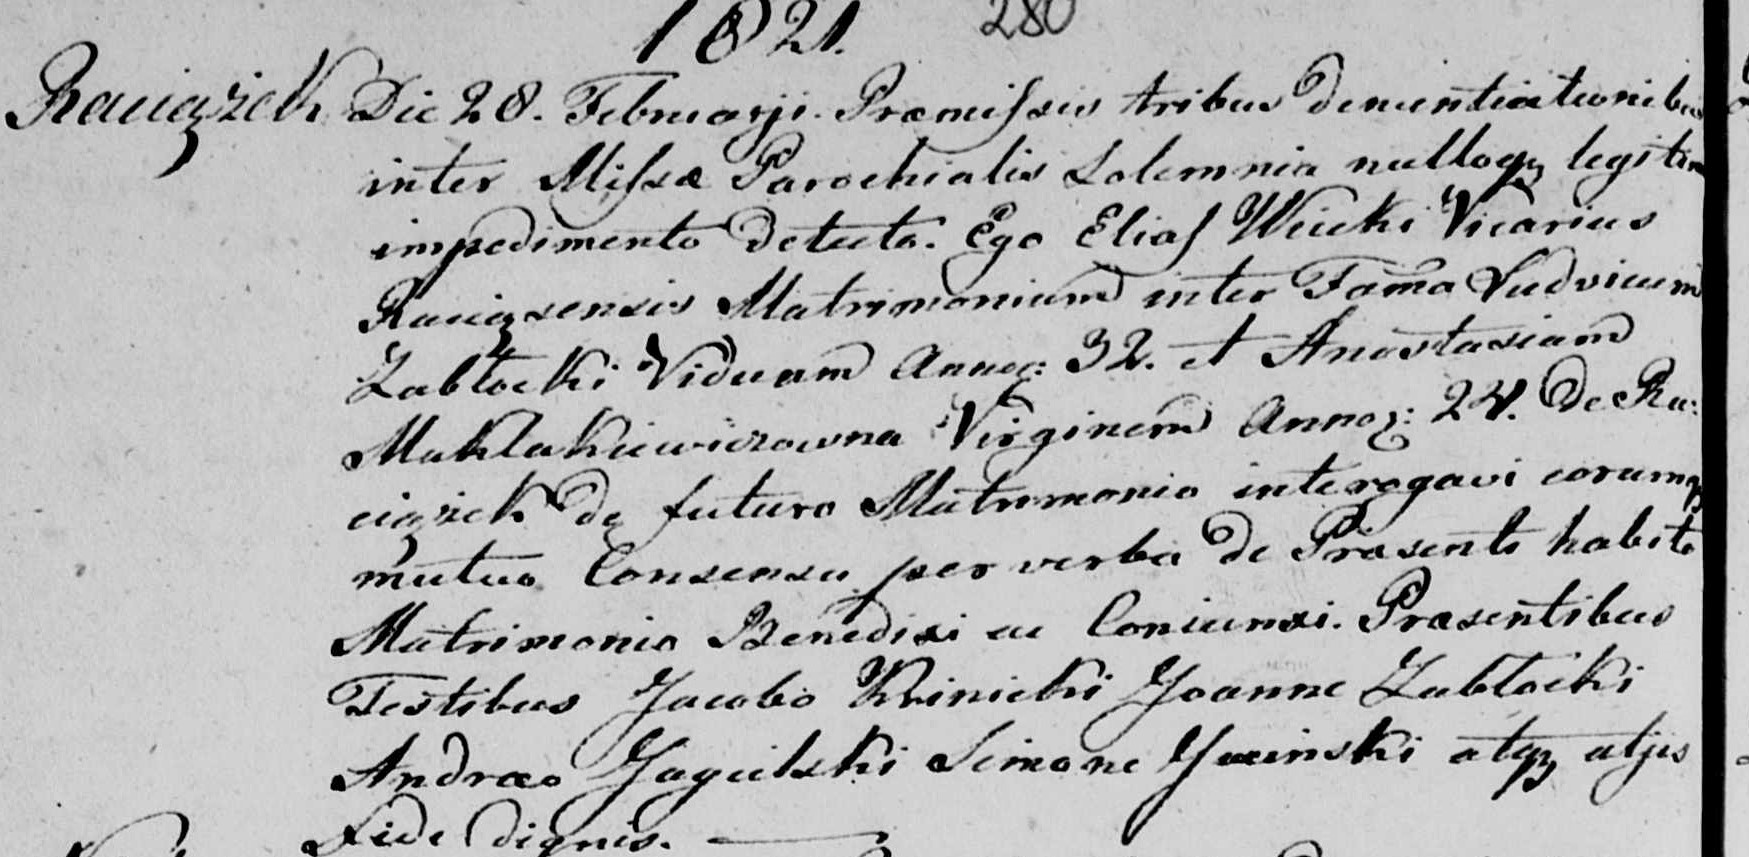 1821. 280
Raciążek Die 28. Februarji. Præmissis tribus denuntiationibus
inter Missæ Parochialis Solemnia nulloqz legitimo
impedimento detecto. Ego Elias Wicki Vicarius
Raciązensis Matrimonium inter Fama Ludvicum
Zabłocki Viduum Annor: 32. et Anastasiam
Maklakiewiczowna Virginem Annoz: 24. de Ra:
ciązek de futuro Matrimonio interogavi eorumqz
mutuo Consensu per verba de Præsenti habito
Matrimonio Benedixi ac Coniunxi. Præsentibus
Testibus Jacobo Kninicki Joanne Zabłocki
Andræo Jagielski Simone atqz aljis
Fide dignis.